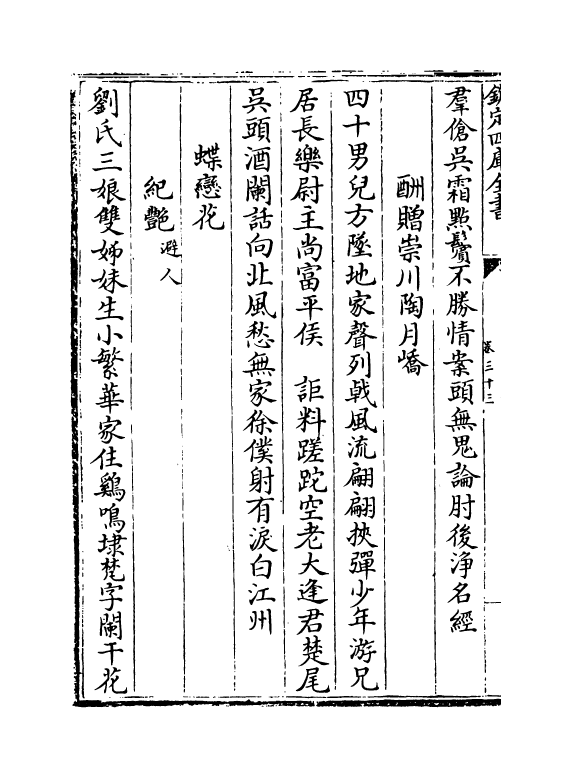 欽定四庫全書
卷三十三
羣傖吳霜點鬢不勝情案頭無鬼論肘後淨名經
酬贈崇川陶月嶠
四十男兒方墜地家聲列㦸風流翩翩挾彈少年游兄
居長樂尉主尚富平侯　詎料蹉跎空老大逢君楚尾
吳頭酒闌話向北風愁無家徐僕射有淚白江州
蝶戀花
紀艷避人
劉氏三娘雙姊妹生小繁華家住鷄鳴埭梵字闌干花